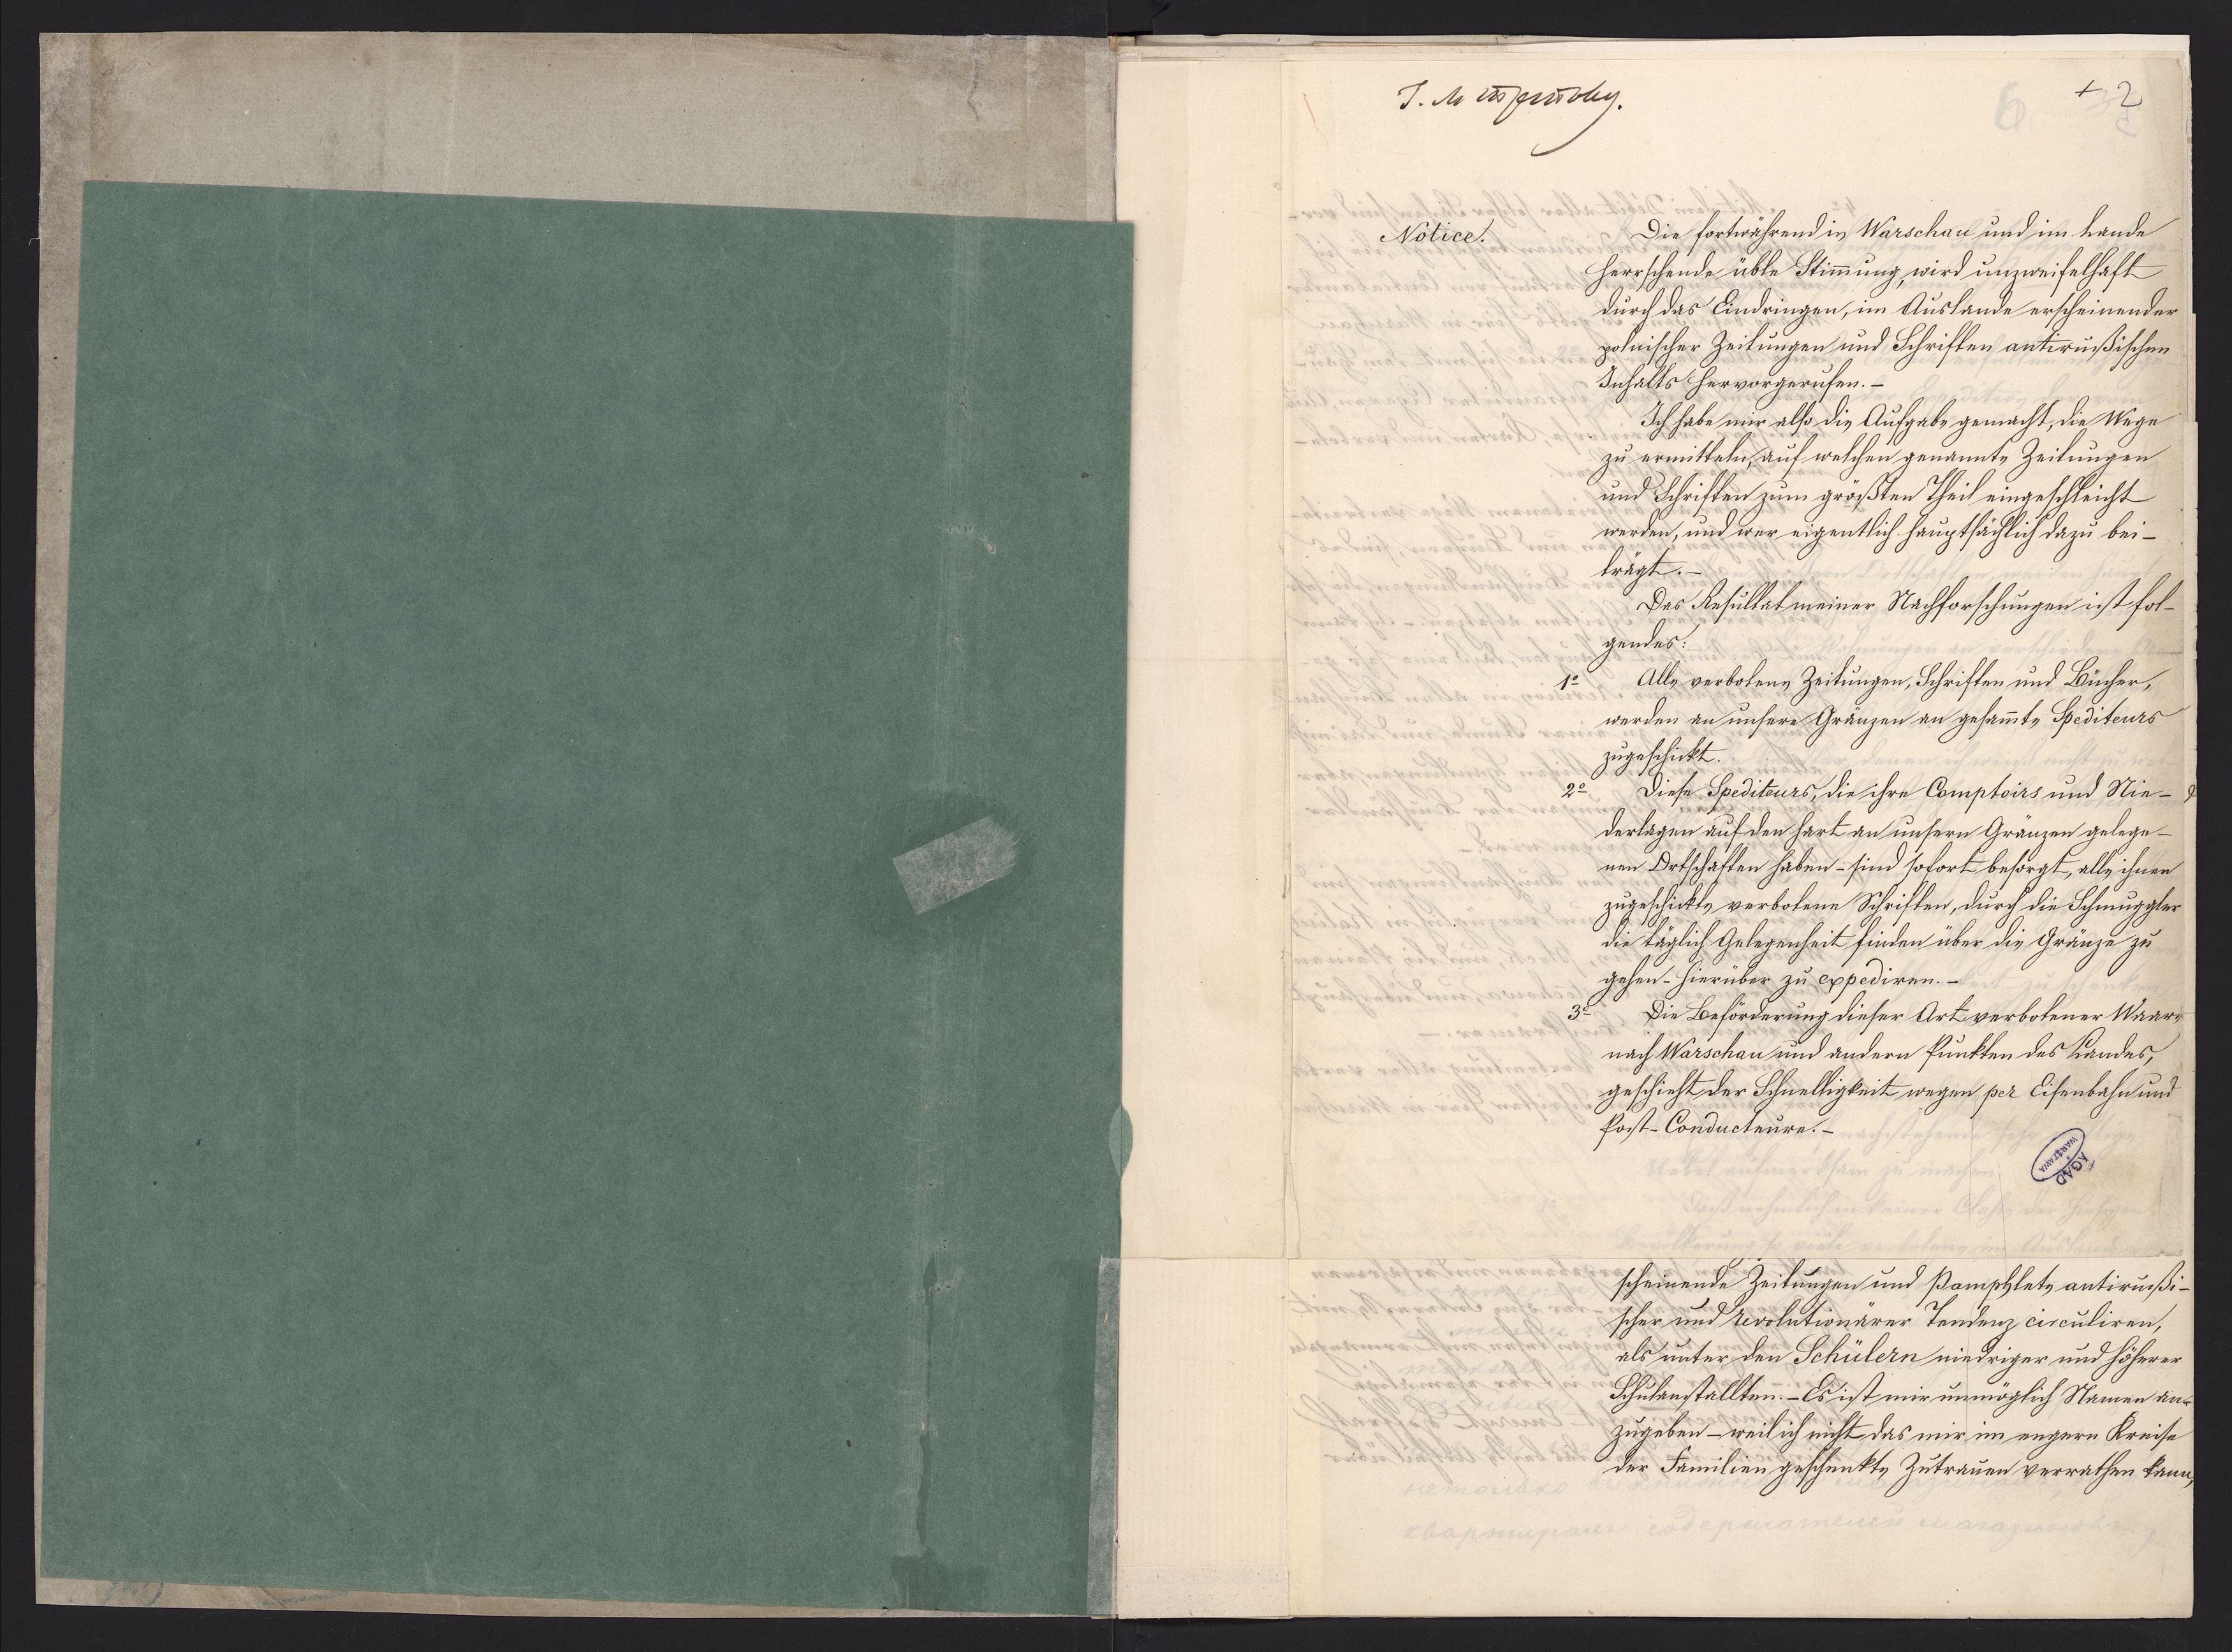 + 2
6
Notice.
Die fortwährend in Warschau und im Lande
herrschende üble Stimmung, wird unzweifelhaft
durch das Eindringen, im Auslande erscheinender
polnischer Zeitungen und Schriften antirußischen
Inhalts hervorgerufen. –
Ich habe mir also die Aufgabe gemacht, die Wege
zu ermitteln, auf welchen genannte Zeitungen
und Schriften zum größten Theil eingeschleicht
werden, und wer eigentlich hauptsächlich dazu bei-
trägt. –
Das Resultat meiner Nachforschungen ist fol-
gendes:
1º Alle verbotene Zeitungen, Schriften und Bücher,
werden an unsere Gränzen an gesammte Spediteurs
zugeschickt.
2º Diese Spediteurs, die ihre Comptoirs und Nie-
derlagen auf den hart an unsern Gränzen gelege-
nen Ortschaften haben – sind sofort besorgt, alle ihnen
zugeschickte verbotene Schriften, durch die Schmuggler
die täglich Gelegenheit finden über die Gränze zu
gehen – hierüber zu expediren. –
3º Die Beförderung dieser Art verbotener Waare
nach Warschau und andern Punkten des Landes,
geschieht der Schnelligkeit wegen per Eisenbahn und
Post-Conducteure. –
AGAD
WARSZAWA
scheinende Zeitungen und Pamphlete antirußi-
scher und revolutionärer Tendenz circuliren,
als unter den Schülern niedriger und höherer
Schulanstallten. – Es ist mir unmöglich Namen an-
zugeben – weil ich nicht das mir im engern Kreise
der Familien geschenkte Zutrauen verrathen kann,